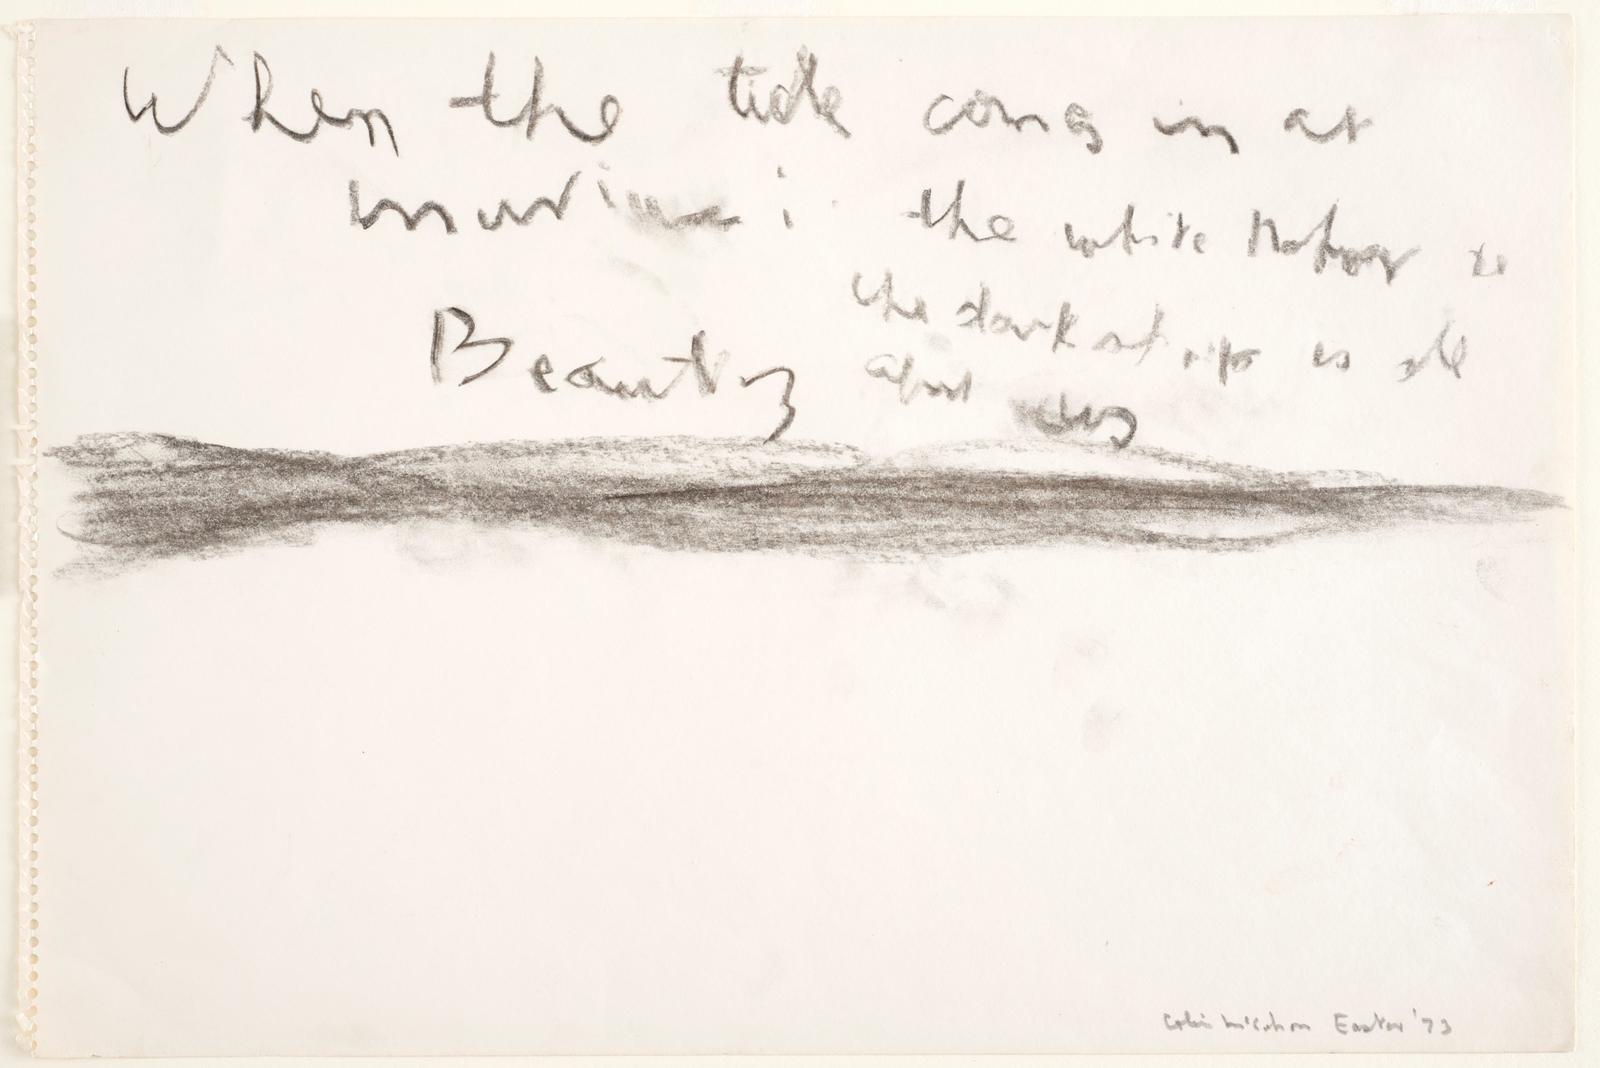 When the tide comes in at
muriwai : the white
the dark strip is all
Beauty
Colin McCahon Easter '73